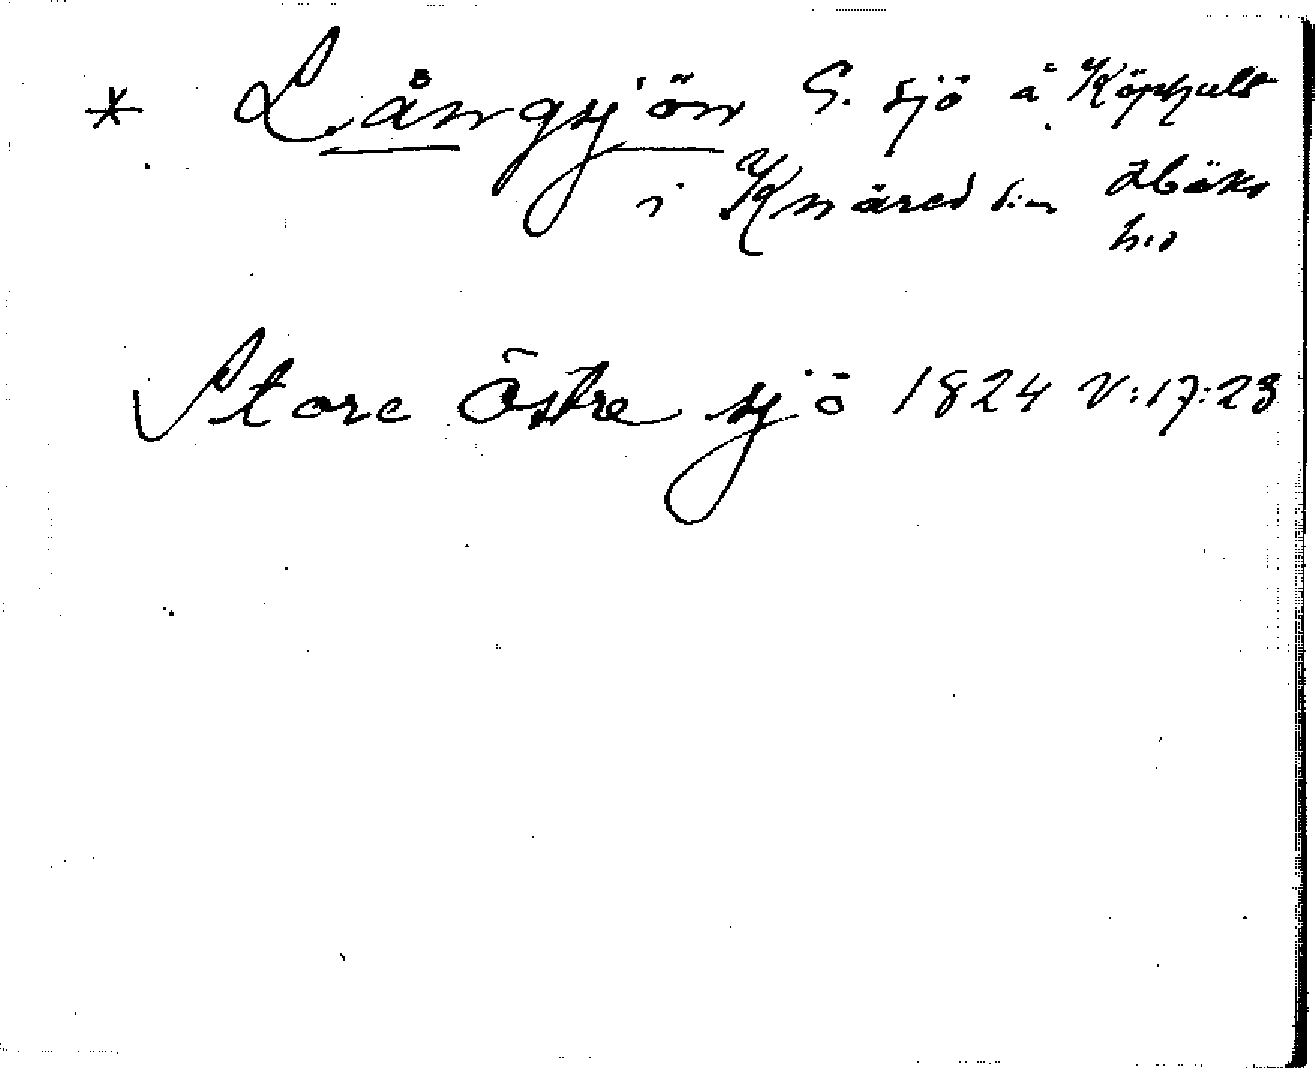 * Långsjön S. sjö å Köphult
i Knäred s:n Höks
h:d
Store Östre sjö 1824 V:17:23